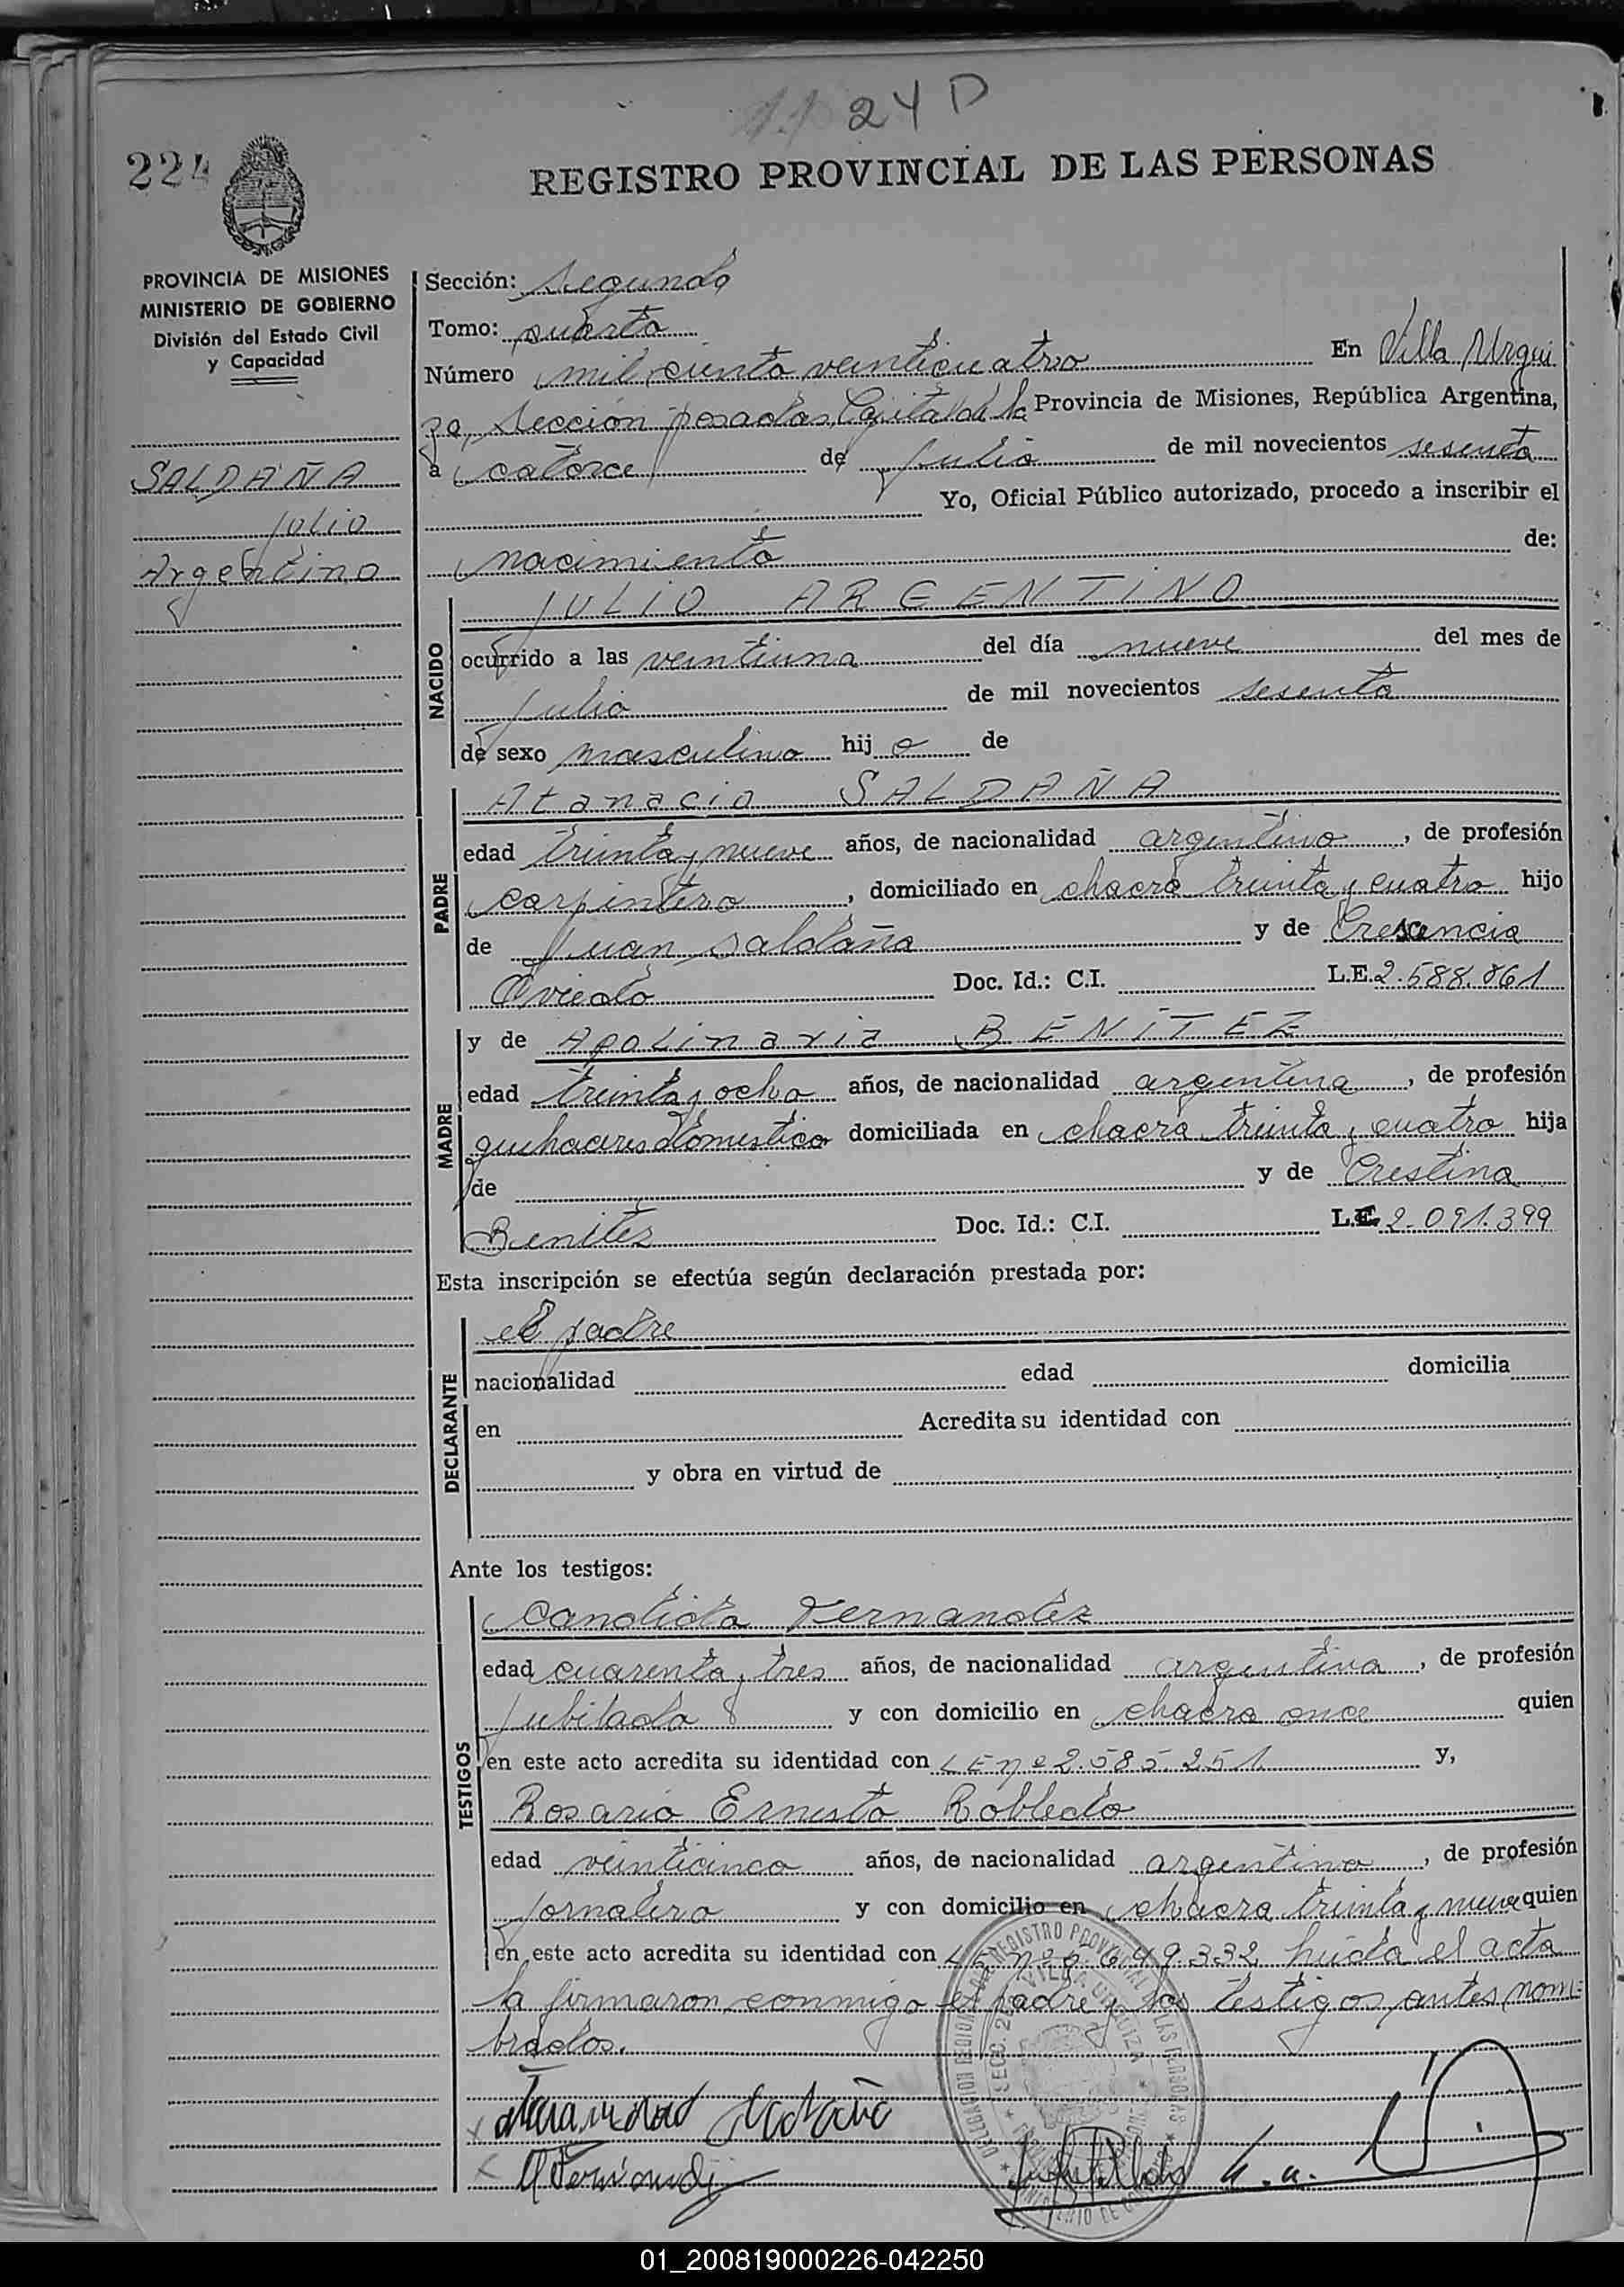 24 D
224
REGISTRO PROVINCIAL DE LAS PERSONAS
PROVINCIA DE MISIONES
MINISTERIO DE GOBIERNO
División del Estado Civil
y Capacidad
SALDAÑA
Julio
Argentino
Sección: Segunda
Tomo: cuarto
Número mil ciento veinticuatro En Villa Urqui
za, Sección posadas, Capital de la Provincia de Misiones, República Argentina,
a catorce de Julio de mil novecientos sesenta
Yo, Oficial Público autorizado, procedo a inscribir el
nacimiento de:
NACIDO
JULIO ARGENTINO
ocurrido a las veintiuna del día nueve del mes de
Julio de mil novecientos sesenta
de sexo masculino hij o de
PADRE
Atanacio SALDAÑA
edad treinta y nueve años, de nacionalidad argentino, de profesión
carpintero, domiciliado en chacra treinta y cuatro hijo
de Juan Saldaña y de Crescencia
Oviedo Doc. Id.: C.I. L.E. 2.588.861
MADRE
y de Apolinaria BENÍTEZ
edad treinta y ocho años, de nacionalidad argentina, de profesión
quehaceres domestico domiciliada en chacra treinta y cuatro hija
de y de Crestina
Benítez Doc. Id.: C.I. L.C. 2.091.399
Esta inscripción se efectúa según declaración prestada por:
DECLARANTE
el padre
nacionalidad edad domicilia
en Acredita su identidad con
y obra en virtud de
Ante los testigos:
TESTIGOS
Candido Fernandez
edad cuarenta y tres años, de nacionalidad argentino, de profesión
jubilado y con domicilio en chacra once quien
en este acto acredita su identidad con LE nº 2.585.251 y,
Rosario Ernesto Robledo
edad veinticinco años, de nacionalidad argentino, de profesión
jornalero y con domicilio en chacra treinta y nueve quien
en este acto acredita su identidad con 649.332 leída el acta
la firmaron conmigo el padre y los testigos antes nom-
brados.
01_200819000226-042250